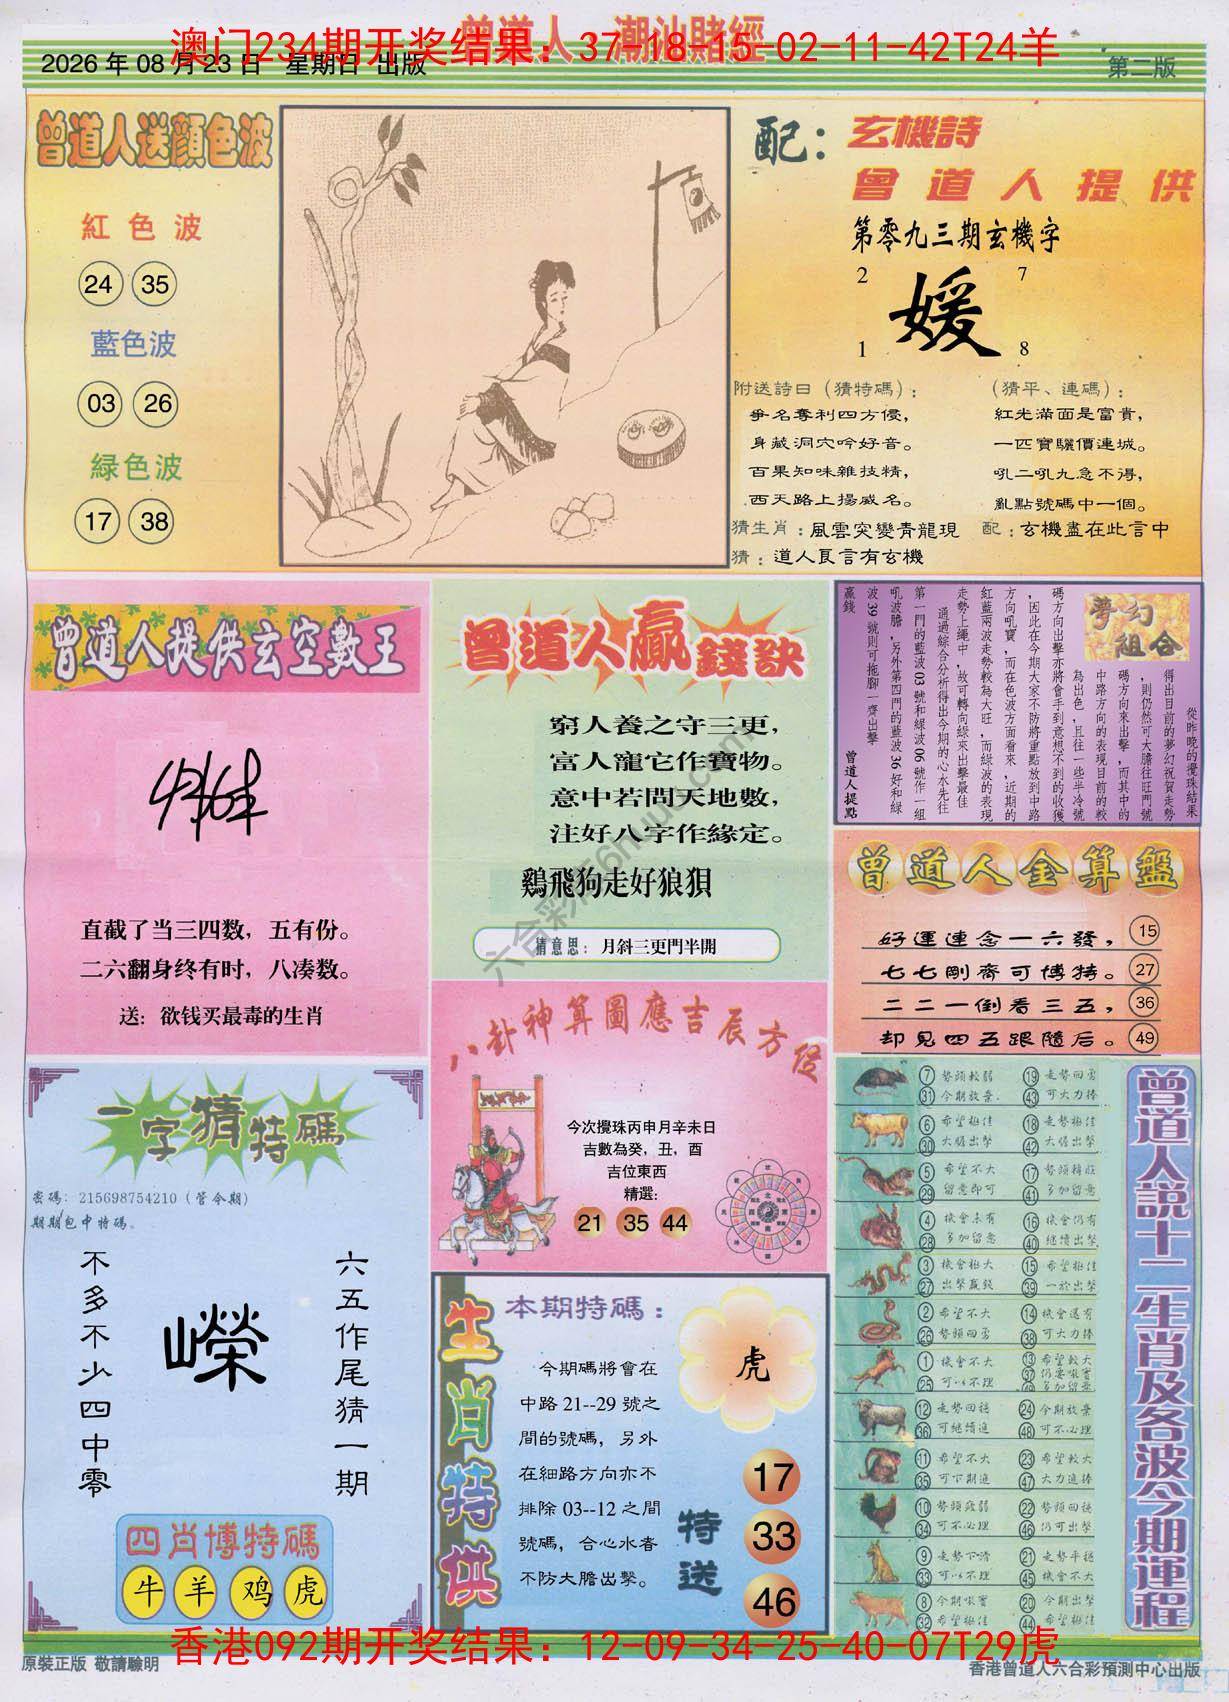 曾道人·潮汕賭經
澳门234期开奖结果：37-18-15-02-11-42T24羊
2026 年 08 月 23 日 星期日 出版
第二版
曾道人送顏色波
紅色波
24 35
藍色波
03 26
緑色波
17 38
配：玄機詩
曾道人提供
第零九三期玄機字
2 7
媛
1 8
附送詩曰（猜特碼）：
爭名奪利四方侵，
身藏洞穴吟好音。
百果知味雜技精，
西天路上揚威名。
猜生肖：風雲突變青龍現
猜：道人良言有玄機
（猜平、連碼）：
紅光滿面是富貴，
一匹寶驪價連城。
吼二吼九急不得，
亂點號碼中一個。
配：玄機盡在此言中
曾道人提供玄空數王
直截了当三四数，五有份。
二六翻身终有时，八凑数。
送：欲钱买最毒的生肖
曾道人贏錢訣
窮人養之守三更，
富人寵它作寶物。
意中若問天地數，
注好八字作緣定。
鷄飛狗走好狼狽
猜意思：月斜三更門半開
夢幻組合
從昨晚的攪珠結果
得出目前的夢幻祝賀走勢
，則仍然可大膽往旺門號
碼方向來出擊，而其中的
中路方向的表現目前的較
為出色，且往一些半冷號
碼方向出擊亦將會手到意想不到的收獲
，因此在今期大家不防將重點放到中路
方向吼寶，而在色波方面看來，近期的
紅藍兩波走勢較為大旺，而綠波的表現
走勢上繩中，故可轉向綠來出擊最佳
通過綜合分析得出今期的心水先往
第一門的藍波 03 號和綠波 06 號作一組
吼波膽，另外第四門的藍波 36 好和綠
波 39 號則可拖腳一齊出擊
贏錢
曾道人提點
曾道人金算盤
好運連念一六發，15
七七剛齋可博特。27
二二一倒看三五，36
却見四五跟隨后。49
八卦神算圖應吉辰方位
今次攪珠丙申月辛未日
吉數為癸，丑，酉
吉位東西
精選：
21 35 44
一字猜特碼
密碼：215698754210（管今期）
期期包中特碼。
不多不少四中零
嶸
六五作尾猜一期
四肖博特碼
牛 羊 鸡 虎
生肖特供
本期特碼：
虎
今期碼將會在
中路 21--29 號之
間的號碼，另外
在細路方向亦不
排除 03--12 之間
號碼，合心水者
不防大膽出擊。
特送
17
33
46
曾道人說十二生肖及各波今期運程
7 勢頭較弱 19 走勢回勇
31 今期放棄 43 可大力捧
6 希望極佳 18 走勢極佳
30 大膽出擊 42 大膽出擊
5 希望不大 17 勢頭轉旺
29 留意即可 41 多加留意
4 機會未有 16 機會仍有
28 多加留意 40 繼續出擊
3 機會極大 15 希望極佳
27 出擊贏錢 39 一於出擊
2 希望不大 14 機會還有
26 勢頭回勇 38 可大力捧
1 機會不大 13 希望較大
25 可以不理 37 仍要吼實
49 多加留意
12 走勢回穩 24 今期放棄
36 可繼續追 48 可不必理
11 希望不大 23 希望較大
35 可下期追 47 大力追捧
10 勢頭疲弱 22 勢頭回穩
34 可不必理 46 仍可出擊
9 走勢下滑 21 走勢平穩
33 可以不理 45 機會不大
8 今期吼實 20 今期出擊
32 希望極佳 44 希望極佳
香港092期开奖结果：12-09-34-25-40-07T29虎
原裝正版 敬請驗明
香港曾道人六合彩預測中心出版